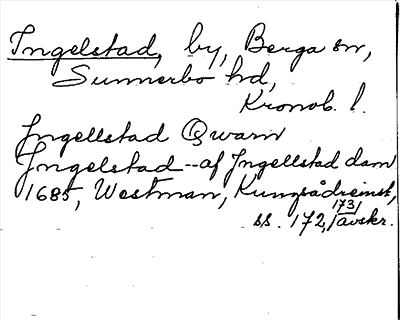 Ingelstad, by, Berga sn,
Sunnerbo hd,
Kronob. l.
Jngellstad Qwarn
Jngelstad -- af Jngellstad dam
1685, Westman, Kungsådreinst,
ss. 172, 173, avskr.